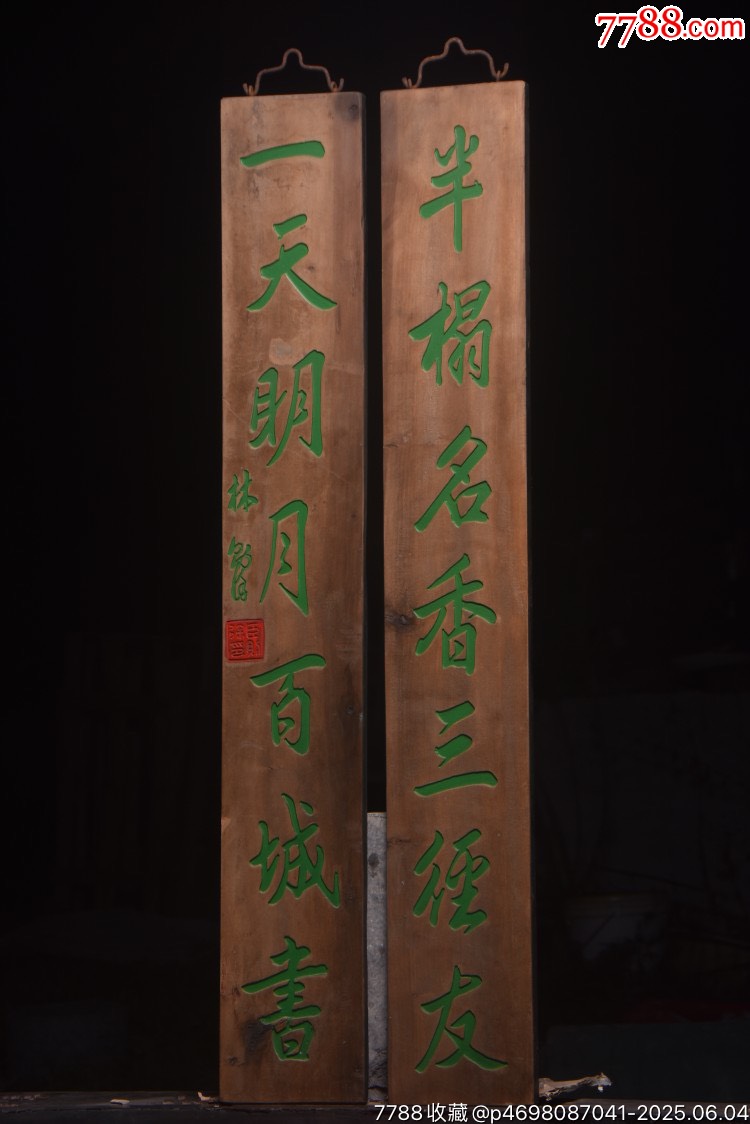 7788.com
半榻名香三徑友
一天明月百城書
7788收藏@p4698087041-2025.06.04